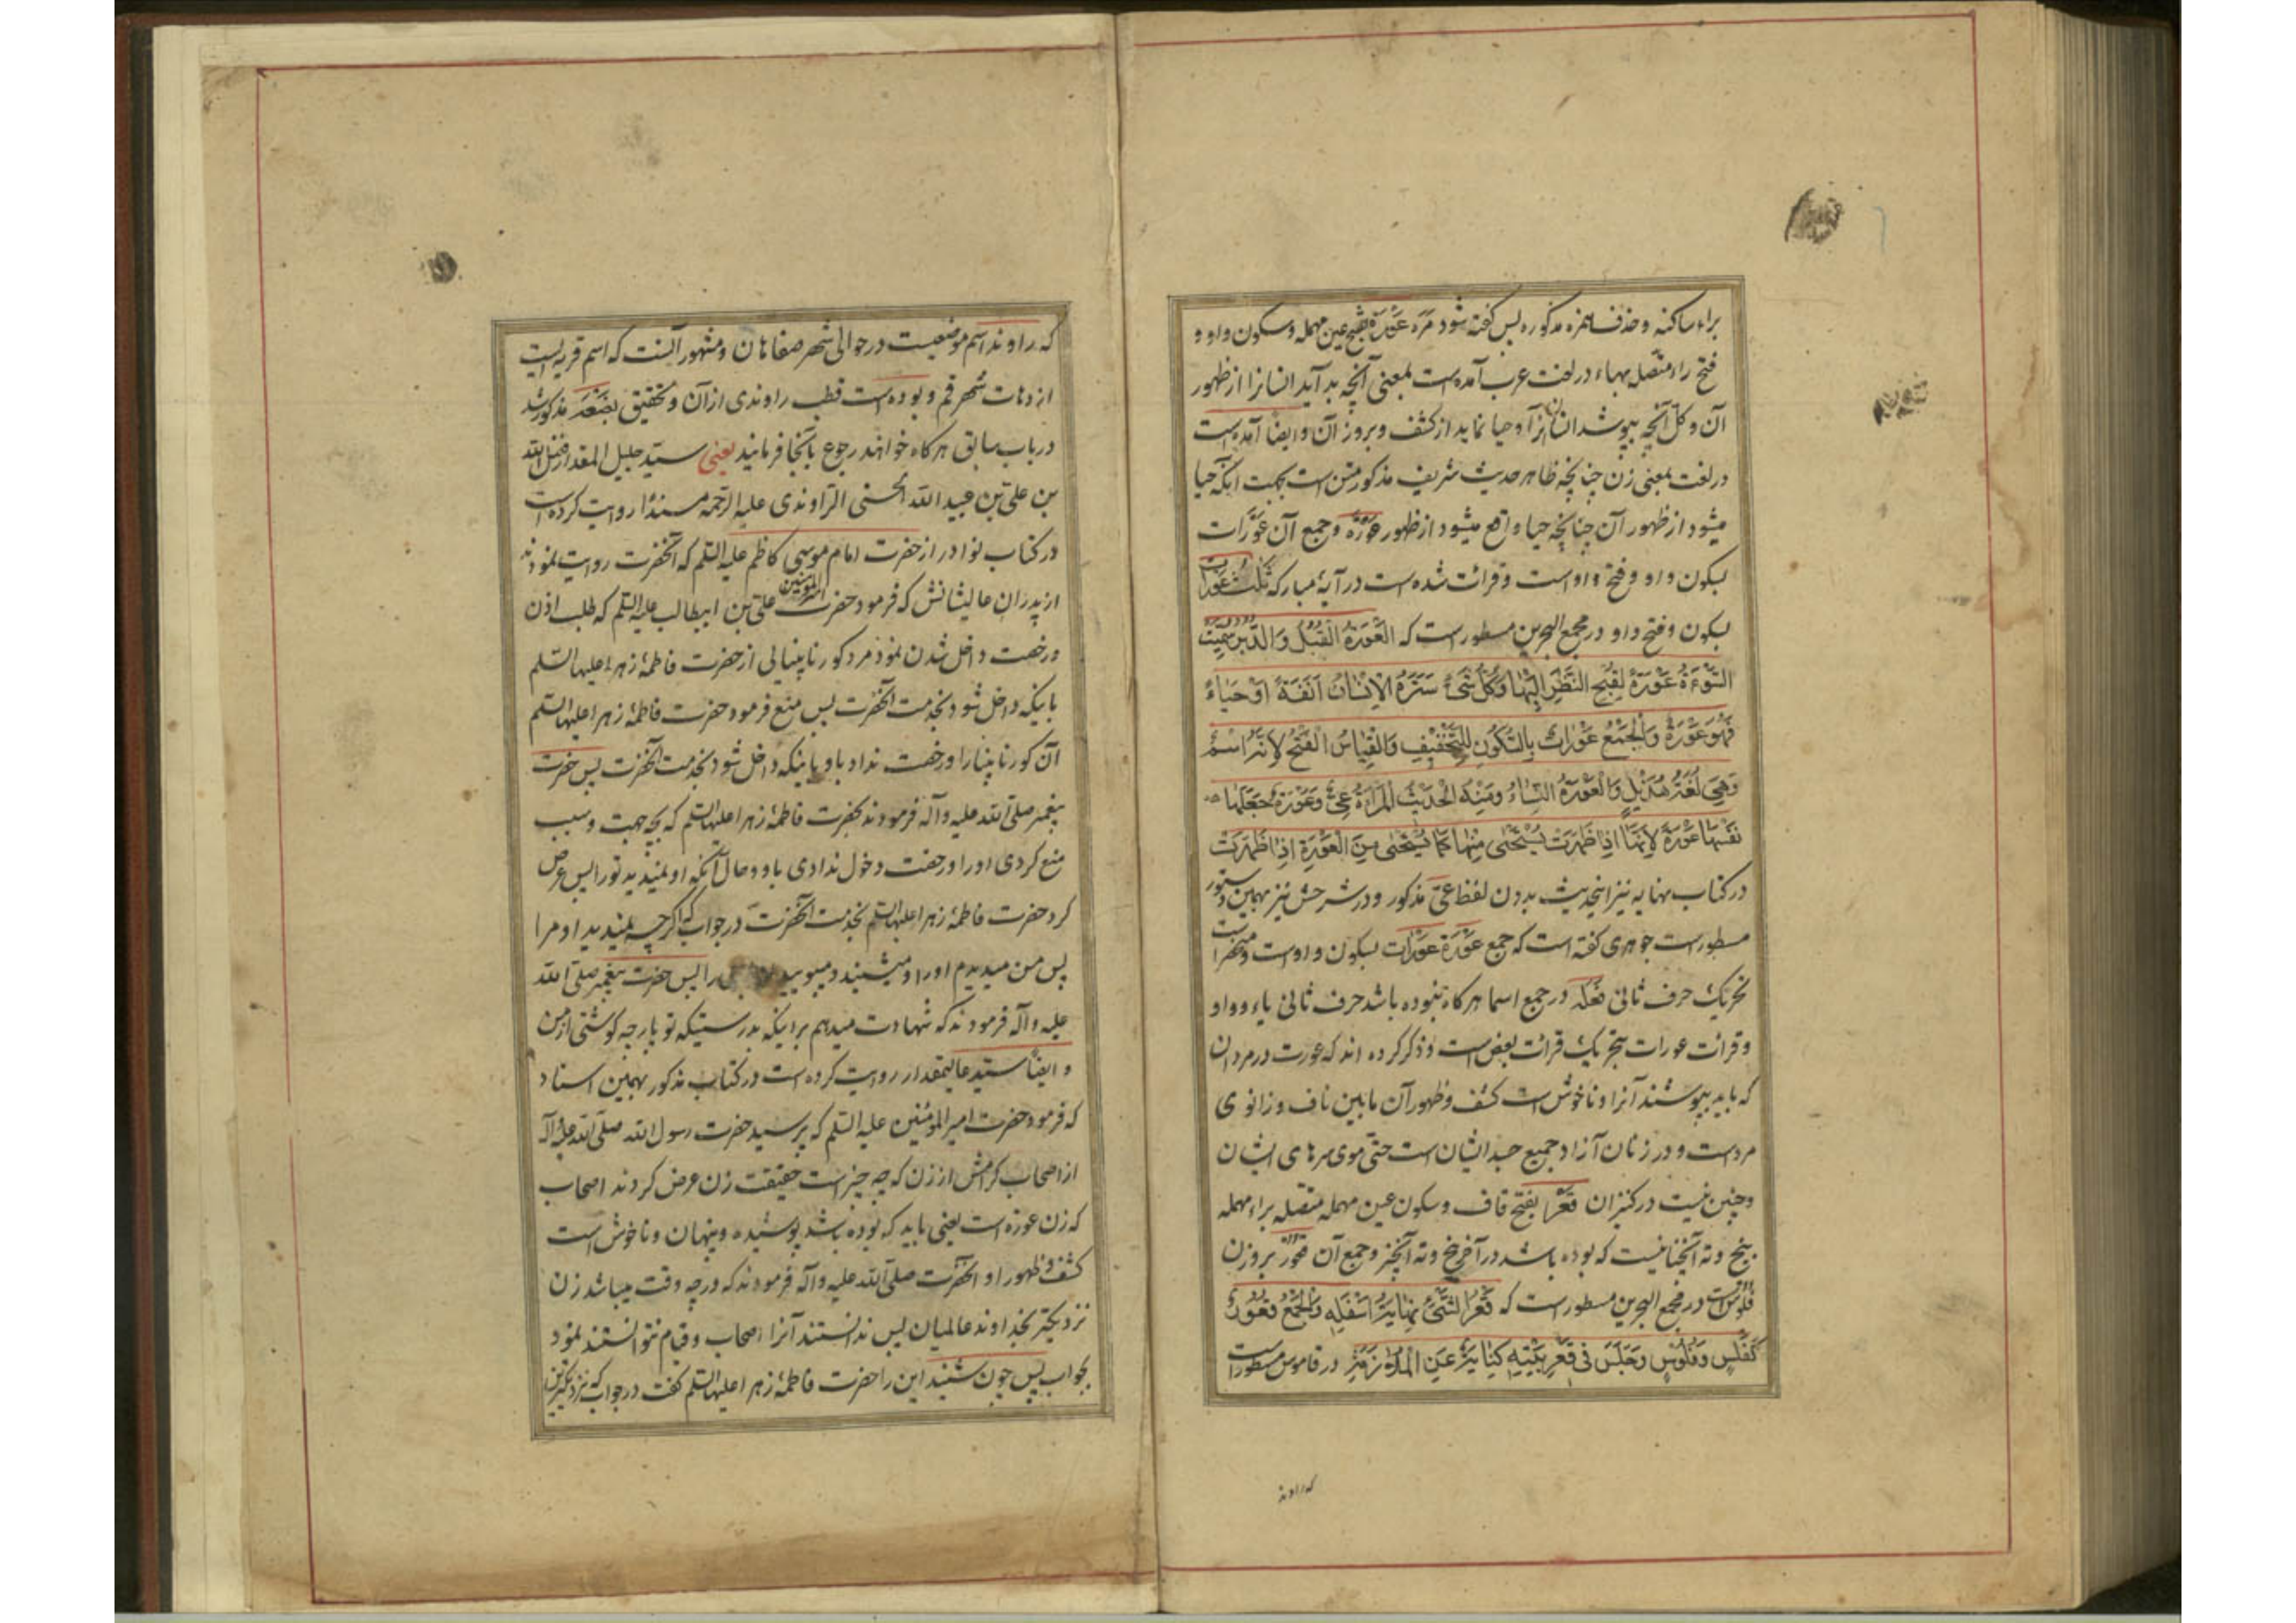 براء ساکنه و حذف همزه مذکوره پس گفته شود مَرَه عَوْرَة بفتح عین مهمله و سکون واو و
فتح راء متصل بهاء در لغت عرب آمده است بمعنی آنچه بد آید انسانرا از ظهور
آن و کل آنچه بپوشد انسان آنرا و حیا نماید از کشف و بروز آن و ایضاً آمده است
در لغت بمعنی زن چنانچه ظاهر حدیث شریف مذکور متن است بجهت اینکه حیا
میشود از ظهور آن چنانچه حیا واقع میشود از ظهور عَوْرَة و جمع آن عَوْرَات
بسکون واو و فتح واو است و قرائت شده است در آیهٔ مبارکه ثَلٰثُ عَوْرَاتٍ
بسکون و فتح واو در مجمع البحرین مسطور است که الْعَوْرَةُ الْقُبُلُ وَالدُّبُرُ سُمِّیَتْ
السَّوْءَةُ عَوْرَةً لِقُبْحِ النَّظَرِ اِلَیْهَا وَکُلُّ شَیْءٍ سَتَرَهُ الْاِنْسَانُ اَنَفَةً اَوْ حَیَاءً
فَهُوَ عَوْرَةٌ وَالْجَمْعُ عَوْرَاتٌ بِالسُّکُونِ لِلتَّخْفِیفِ وَالْقِیَاسُ الْفَتْحُ لِاَنَّهُ اسْمٌ
وَهِیَ لُغَةُ هُذَیْلٍ وَالْعَوْرَةُ النِّسَاءُ وَمِنْهُ الْحَدِیْثُ الْمَرْاَةُ عِیٌّ وَعَوْرَةٌ جَعَلَهَا
نَفْسَهَا عَوْرَةً لِاَنَّهَا اِذَا ظَهَرَتْ یُسْتَحْیٰی مِنْهَا کَمَا یُسْتَحْیٰی مِنَ الْعَوْرَةِ اِذَا ظَهَرَتْ
در کتاب نهایه نیز اینحدیث بدون لفظ عِیّ مذکور و در شرحش نیز بهمین دستور
مسطور است جوهری گفته است که جمع عَوْرَة عَوْرَات بسکون واو است و منحصر است
تحریک حرف ثانی فَعْلَة در جمع اسما هرگاه نبوده باشد حرف ثانی یاء و واو
و قرائت عورات بتحریک قرائت بعض است و ذکر کرده اند که عورت در مردان
که باید بپوشند آنرا و ناخوش است کشف و ظهور آن مابین ناف و زانوی
مرد است و در زنان آزاد جمیع جسد ایشان است حتی موی سرهای ایشان
و چنین نیست در کنیزان قَعْر بفتح قاف و سکون عین مهمله متصله براء مهمله
بیخ و ته آنچنانیست که بوده باشد در آخر بیخ و ته آنچیز و جمع آن قُعُوْر بروزن
فُلُوْس است در مجمع البحرین مسطور است که قَعْرُ الشَّیْءِ نِهَایَةُ اَسْفَلِهِ وَالْجَمْعُ قُعُوْرٌ
کَفَلْسٍ وَ فُلُوْسٍ وَجَلَسَ فِی قَعْرِ بَیْتِهِ کِنَایَةٌ عَنِ الْمُلَازَمَةِ در قاموس مسطور است
که راوند
که راوند اسم موضعیست در حوالی شهر صفاهان و مشهور آنست که اسم قریه ایست
از دهات شهر قم و بوده است قطب راوندی از آن و تحقیق بَضْعَة مذکور شد
در باب سابق هرگاه خواهند رجوع بآنجا فرمایند یعنی سید جلیل المقدار فضل الله
بن علی بن عبید الله الحسنی الراوندی علیه الرحمه مسنداً روایت کرده است
در کتاب نوادر از حضرت امام موسی کاظم علیه السلم که آنحضرت روایت نمودند
از پدران عالیشانش که فرمود حضرت امیر المؤمنین علی بن ابیطالب علیه السلم که طلب اذن
و رخصت داخل شدن نمود مرد کور نابینایی از حضرت فاطمهٔ زهرا علیها السلم
باینکه داخل شود بخدمت آنحضرت پس منع فرمود حضرت فاطمهٔ زهرا علیها السلم
آن کور نابینا را و رخصت نداد باو باینکه داخل شود بخدمت آنحضرت پس حضرت
پیغمبر صلی الله علیه و آله فرمودند بحضرت فاطمهٔ زهرا علیها السلم که بچه جهت و سبب
منع کردی او را و رخصت دخول ندادی باو و حال آنکه او نمیدید تو را پس عرض
کرد حضرت فاطمهٔ زهرا علیها السلم بخدمت آنحضرت در جواب که اگرچه نمیدید او مرا
پس من میدیدم او را و میشنید و میبویید را پس حضرت پیغمبر صلی الله
علیه و آله فرمودند که شهادت میدهم براینکه بدرستیکه تو پارچه گوشتی از من
و ایضاً سید عالیمقدار روایت کرده است در کتاب مذکور بهمین اسناد
که فرمود حضرت امیر المؤمنین علیه السلم که پرسید حضرت رسول الله صلی الله علیه و آله
از اصحاب کرامش از زن که چه چیز است حقیقت زن عرض کردند اصحاب
که زن عورة است یعنی باید که بوده باشد پوشیده و پنهان و ناخوش است
کشف و ظهور او آنحضرت صلی الله علیه و آله فرمودند که در چه وقت میباشد زن
نزدیکتر بخداوند عالمیان پس ندانستند آنرا اصحاب و قیام نتوانستند نمود
بجواب پس چون شنید این را حضرت فاطمهٔ زهرا علیها السلم گفت در جواب که نزدیکترین